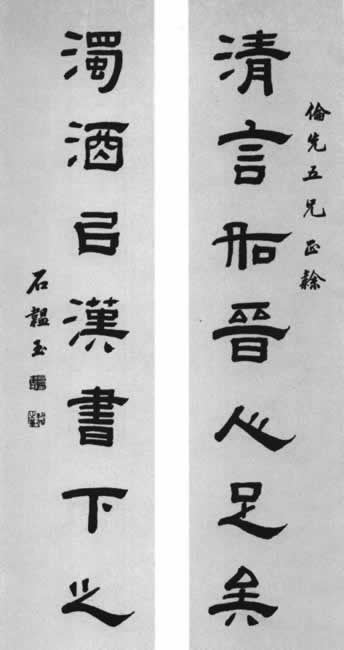 倫先五兄正
清言如晉人足矣
濁酒㠯漢書下之
石韞玉